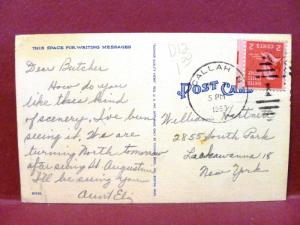 THIS SPACE FOR WRITING MESSAGES
Dear Butcher
How do you
like these kind
of scenery. I've been
seeing it. We are
turning North tomorrow
after seeing St Augustine
I'll be seeing you
Aunt
D12
POST CARD
CALLAH
5 PM
2 CENTS 2
William
2855 South Park
Lackawanna 18
New York